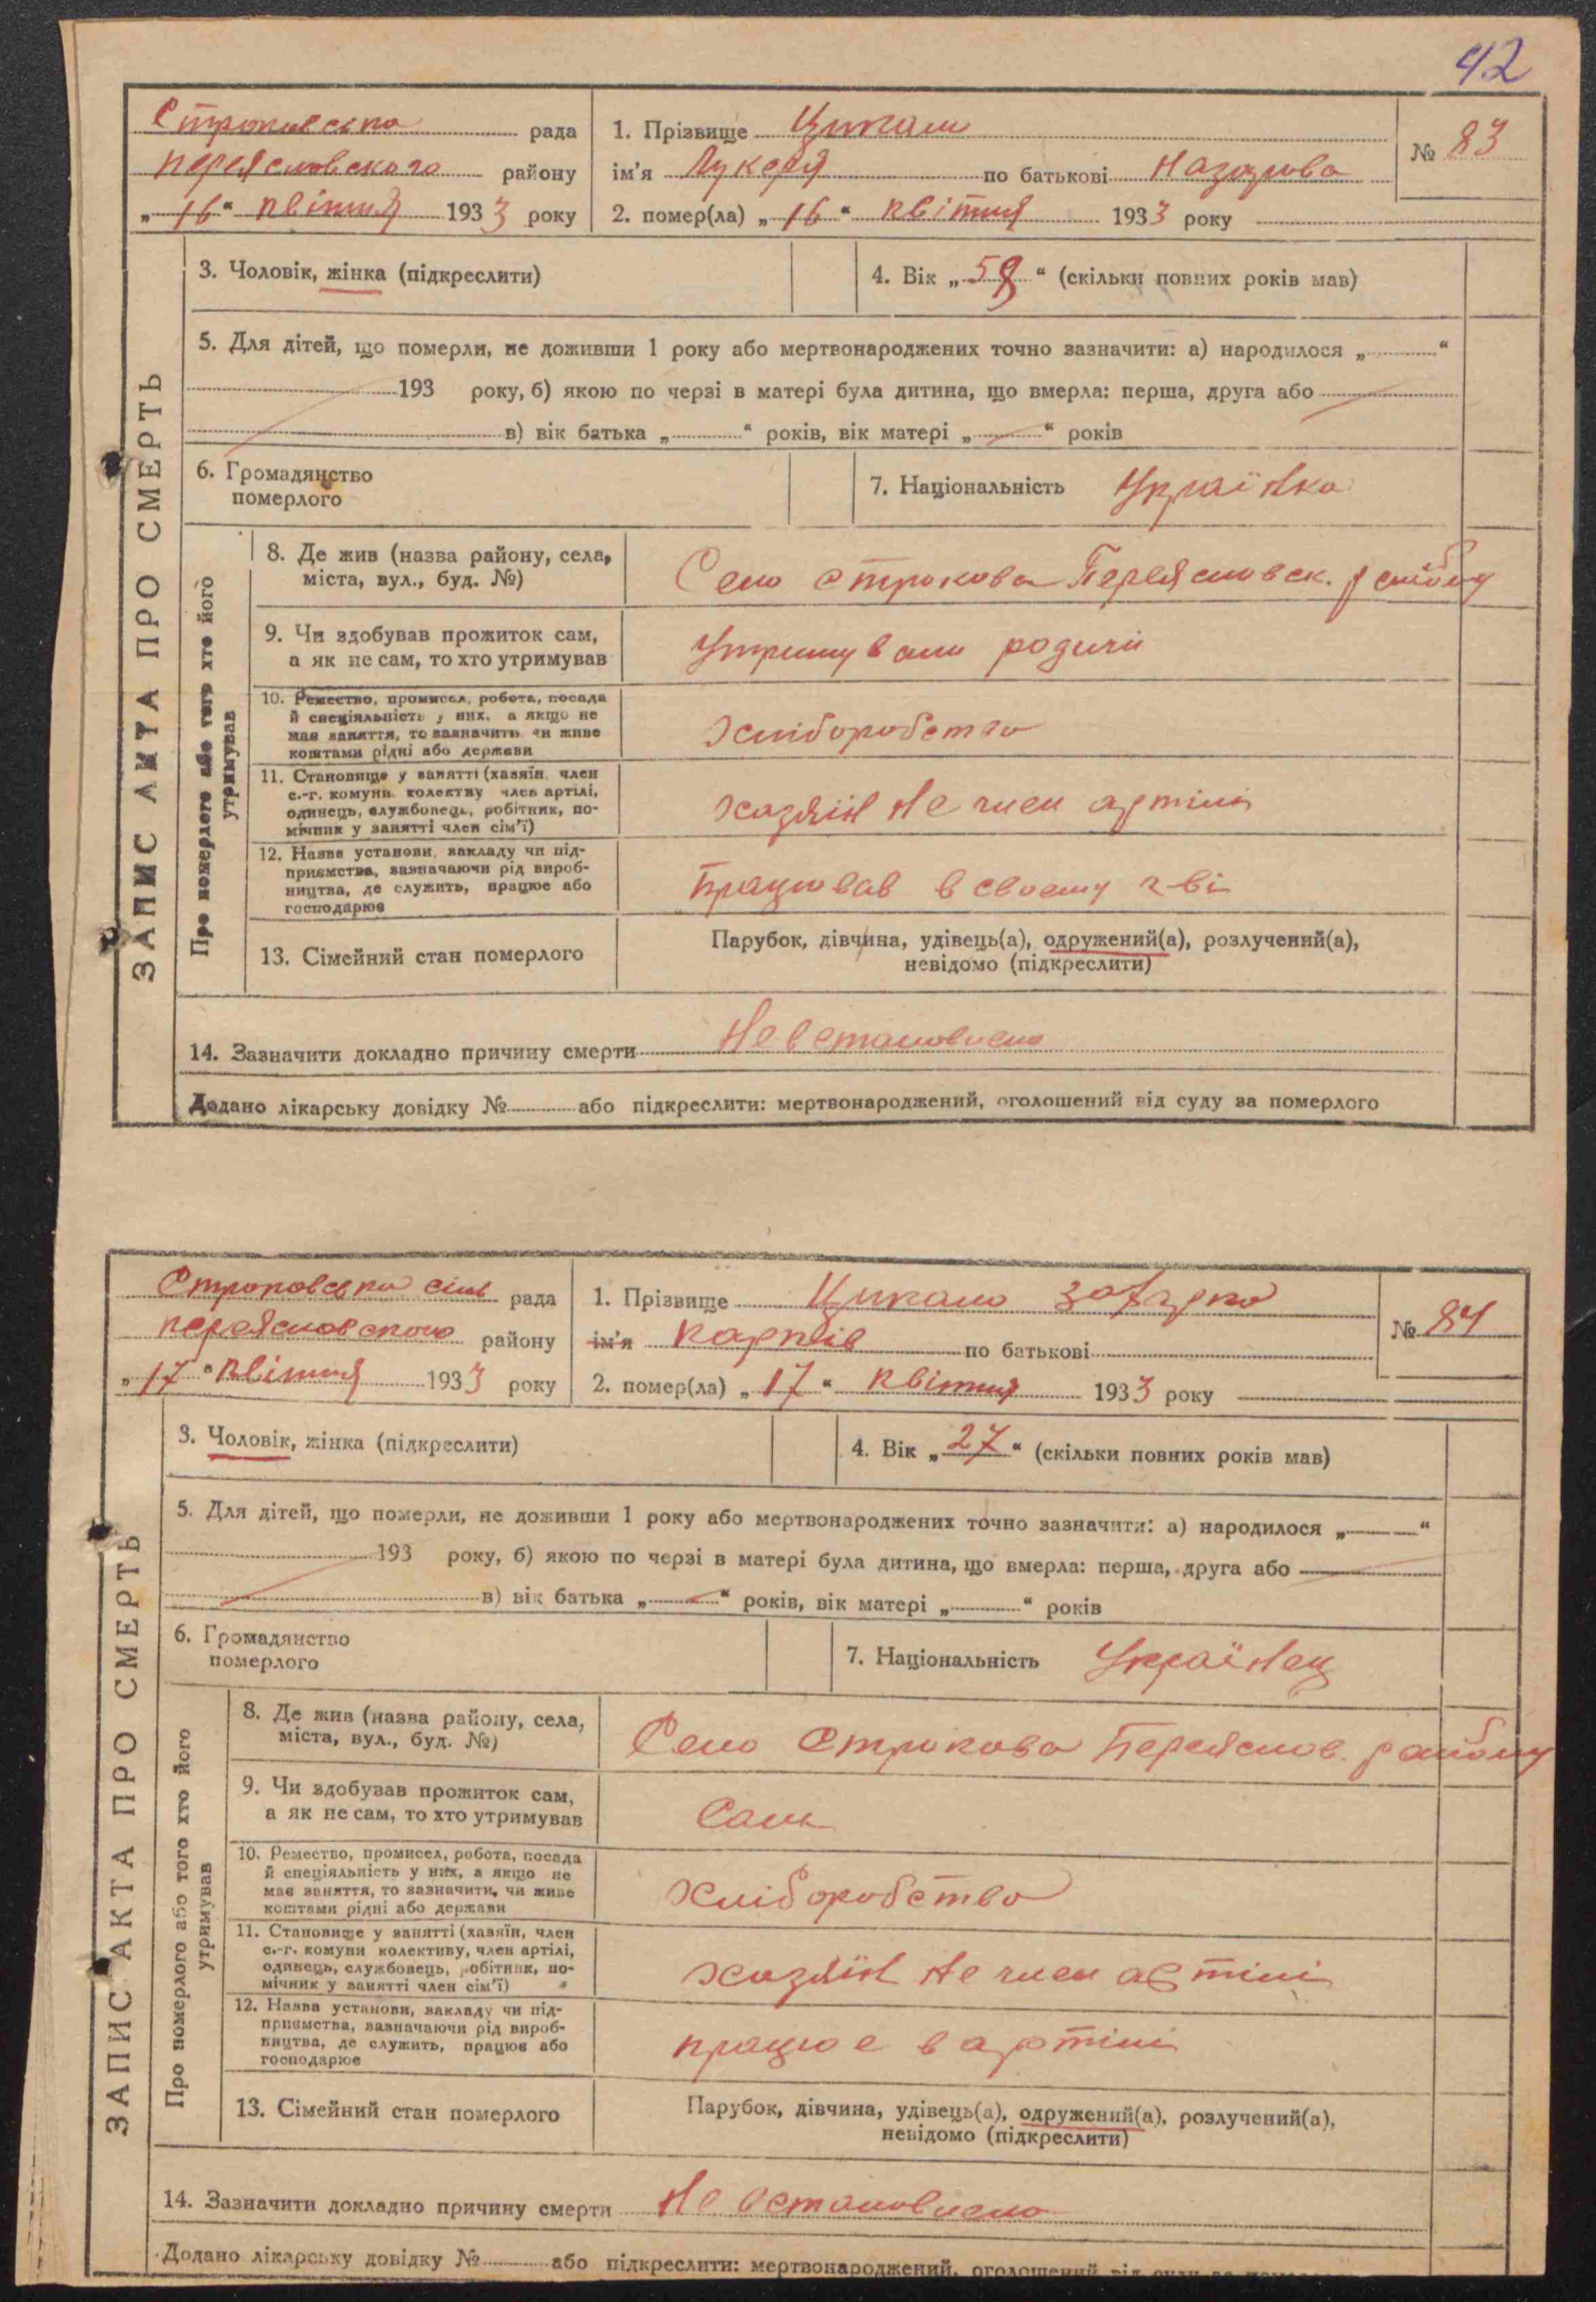 42
Строківська рада
Переяславского району
„16“ квітня 1933 року
1. Прізвище Цикал
ім'я Лукеря по батькові Назарова
2. помер(ла) „16“ квітня 1933 року
№ 83
ЗАПИС АКТА ПРО СМЕРТЬ
3. Чоловік, жінка (підкреслити)
4. Вік „59“ (скільки повних років мав)
5. Для дітей, що померли, не доживши 1 року або мертвонароджених точно зазначити: а) народилося „ “
193 року, б) якою по черзі в матері була дитина, що вмерла: перша, друга або
в) вік батька „ “ років, вік матері „ “ років
6. Громадянство
померлого
7. Національність Українка
Про померлого або того хто його
утримував
8. Де жив (назва району, села,
міста, вул., буд. №)
Село Строкова Переяславск. району
9. Чи здобував прожиток сам,
а як не сам, то хто утримував
Утримували родичи
10. Ремество, промисел, робота, посада
й спеціяльність у них, а якщо не
мав заняття, то зазначить чи живе
коштами рідні або держави
Хліборобство
11. Становище у занятті (хазяїн, член
с.-г. комуни, колективу член артілі,
одинець, службовець, робітник, по-
мічник у занятті член сім'ї)
хазяїн не член артіли
12. Назва установи, закладу чи під-
приємства, зазначаючи рід вироб-
ництва, де служить, працює або
господарює
Працював в своему г-ві
13. Сімейний стан померлого
Парубок, дівчина, удівець(а), одружений(а), розлучений(а),
невідомо (підкреслити)
14. Зазначити докладно причину смерти Невстановлено
Додано лікарську довідку № або підкреслити: мертвонароджений, оголошений від суду за померлого
Строковська сіль рада
Переяславского району
„17“ квітня 1933 року
1. Прізвище Цикало Захарко
ім'я Карпів по батькові
2. помер(ла) „17“ квітня 1933 року
№ 84
ЗАПИС АКТА ПРО СМЕРТЬ
3. Чоловік, жінка (підкреслити)
4. Вік „27“ (скільки повних років мав)
5. Для дітей, що померли, не доживши 1 року або мертвонароджених точно зазначити: а) народилося „ “
193 року, б) якою по черзі в матері була дитина, що вмерла: перша, друга або
в) вік батька „ “ років, вік матері „ “ років
6. Громадянство
померлого
7. Національність Українец
Про померлого або того хто його
утримував
8. Де жив (назва району, села,
міста, вул., буд. №)
Село Строкова Переяслов. району
9. Чи здобував прожиток сам,
а як не сам, то хто утримував
Сам
10. Ремество, промисел, робота, посада
й спеціяльність у них, а якщо не
мав заняття, то зазначити, чи живе
коштами рідні або держави
Хліборобство
11. Становище у занятті (хазяїн, член
с.-г. комуни колективу, член артілі,
одинець, службовець, робітник, по-
мічник у занятті член сім'ї)
хазяїн не член артіли
12. Назва установи, закладу чи під-
приємства, зазначаючи рід вироб-
ництва, де служить, працює або
господарює
працює в артіли
13. Сімейний стан померлого
Парубок, дівчина, удівець(а), одружений(а), розлучений(а),
невідомо (підкреслити)
14. Зазначити докладно причину смерти Не встановлено
Додано лікарську довідку № або підкреслити: мертвонароджений, оголошений від суду за